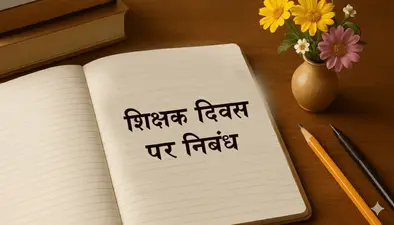 शिक्षक दिवस
पर निबंध